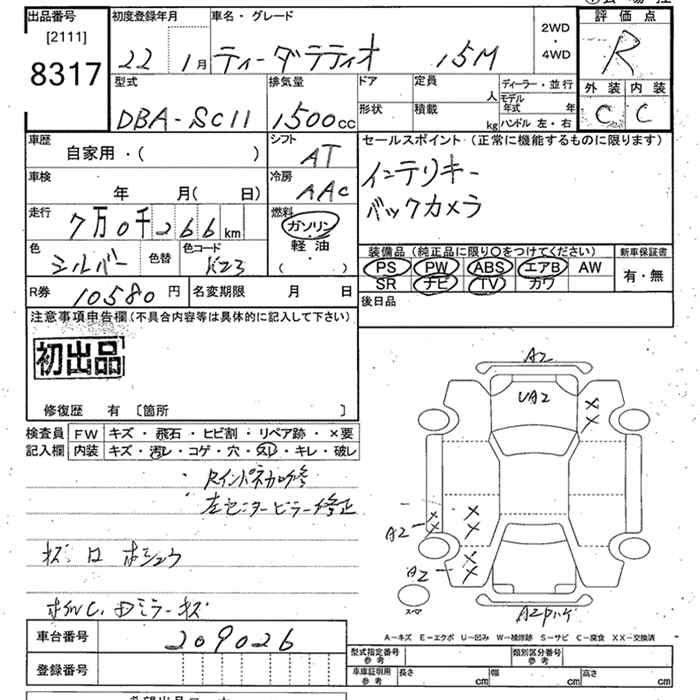 出品番号
[2111]
8317
初度登録年月
22 1月
車名・グレード
ティーダラティオ 15M
2WD
・
4WD
評価点
R
外装 内装
C C
型式
DBA-SC11
排気量
1500cc
ドア
形状
定員 人
積載 kg
ディーラー・並行
モデル年式 年
ハンドル 左・右
車歴
自家用・( )
シフト
AT
車検
年 月( 日)
冷房
AAC
走行
7万0千266km
燃料
ガソリン
軽油
( )
色
シルバー
色替
色コード
K23
R券 10580円
名変期限 月 日
セールスポイント(正常に機能するものに限ります)
インテリキー
バックカメラ
装備品(純正品に限り○をつけてください)
新車保証書
PS PW ABS エアB AW
SR ナビ TV カワ
有・無
後日品
注意事項申告欄(不具合内容等は具体的に記入して下さい)
初出品
修復歴 有 〔箇所 〕
検査員記入欄
FW キズ・飛石・ヒビ割・リペア跡・×要
内装 キズ・汚レ・コゲ・穴・スレ・キレ・破レ
・Rインパネ加修
・左センターピラー修正
A2
UA2
×
×
×
×
A2
×
×
×
×
A2
スペア
A-キズ E-エクボ U-凹み W-補修跡 S-サビ C-腐食 XX-交換済
車台番号
209026
登録番号
型式指定番号 参考
類別区分番号 参考
車庫証明用 参考
長さ cm
幅 cm
高さ cm